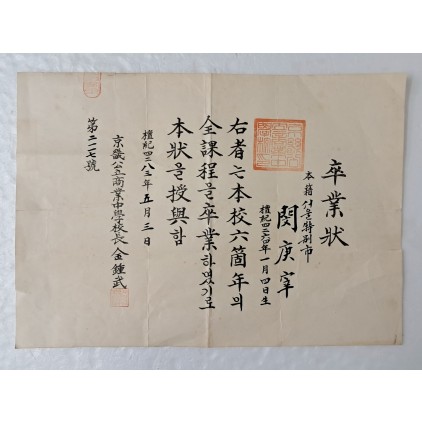 卒業狀
本籍 서울特別市
閔庚宰
檀紀四二六四年一月四日生
右者는本校六箇年의
全課程을卒業하였기로
本狀을授與함
檀紀四二八三年五月三日
京畿公立商業中學校長 金鍾武
第二一七號